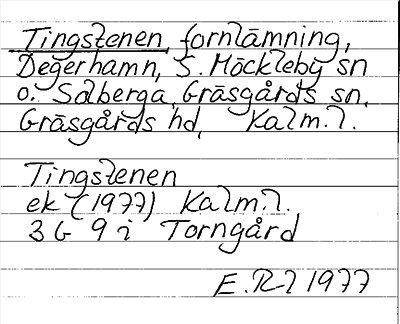 Tingstenen, fornlämning,
Degerhamn, S. Möckleby sn
o. Solberga, Gräsgårds sn,
Gräsgårds hd, Kalm.l.
Tingstenen
ek (1977) Kalm.l.
3 G 9 i Torngård
E.Rl 1977